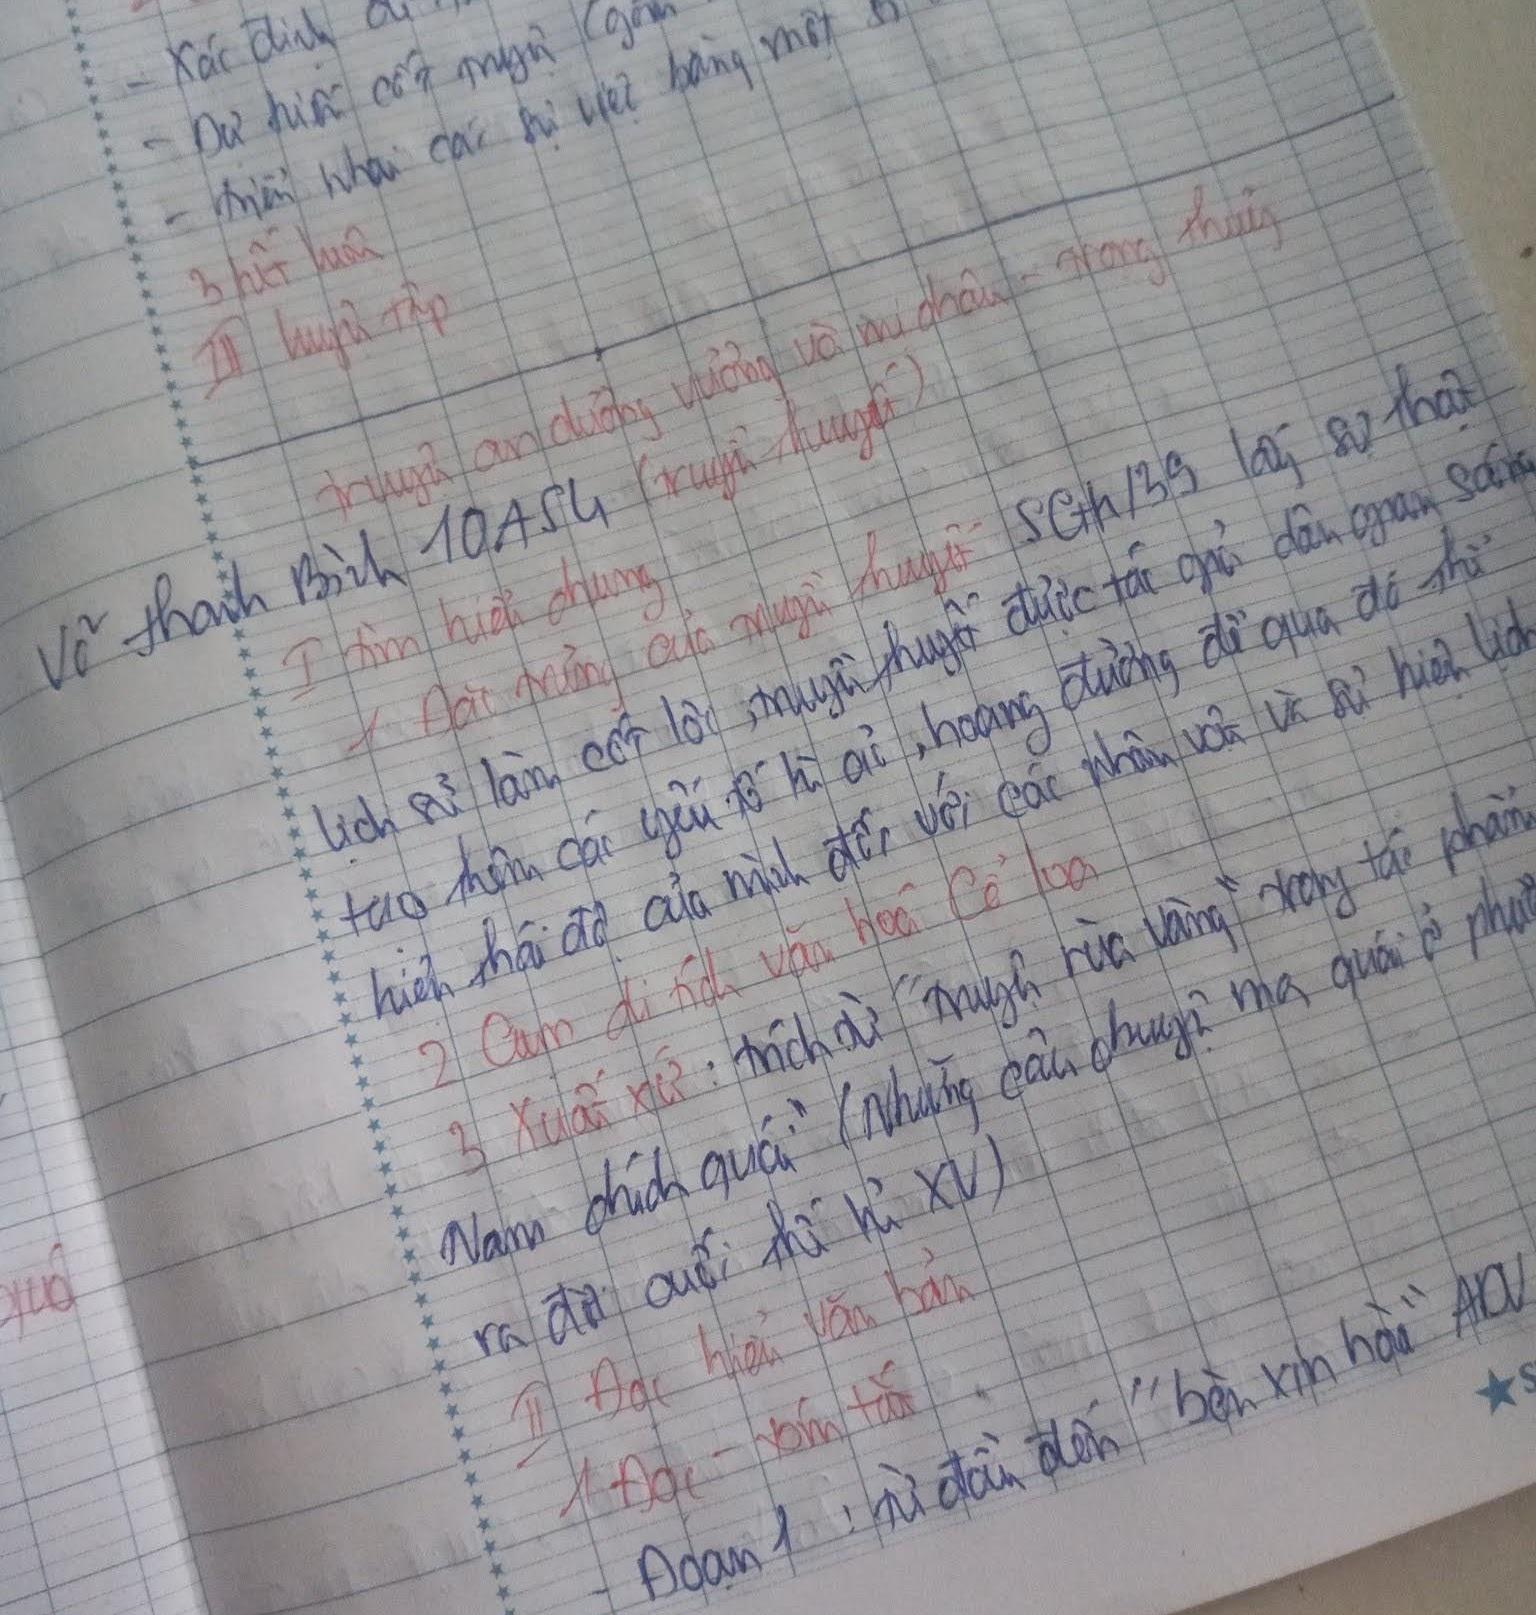 - Xác định
- Dự kiến cốt truyện (gồm
- triển khai các sự việc bằng một
3 kết luận
III luyện tập
truyện an dương vương và mị châu - trọng thủy
(truyện thuyết)
Võ thanh Bình 10A54
I tìm hiểu chung
1 Đặc trưng của truyện thuyết SGK/39 lấy sự thật
lịch sử làm cốt lõi, truyện thuyết được tác giả dân gian sáng
tạo thêm các yếu tố kì ảo, hoang đường để qua đó thể
hiện thái độ của mình đối với các nhân vật và sự kiện lịch
2 Cụm di tích văn hoá Cổ loa
3 Xuất xứ: trích từ "truyện rùa vàng" trong tác phẩm
Nam chích quái" (Những câu chuyện ma quái ở phươ
ra đời cuối thế kỉ XV)
II Đọc hiểu văn bản
1 Đọc - tóm tắt
- Đoạn 1 : từ đầu đến "bèn xin hòa" ADV
quá